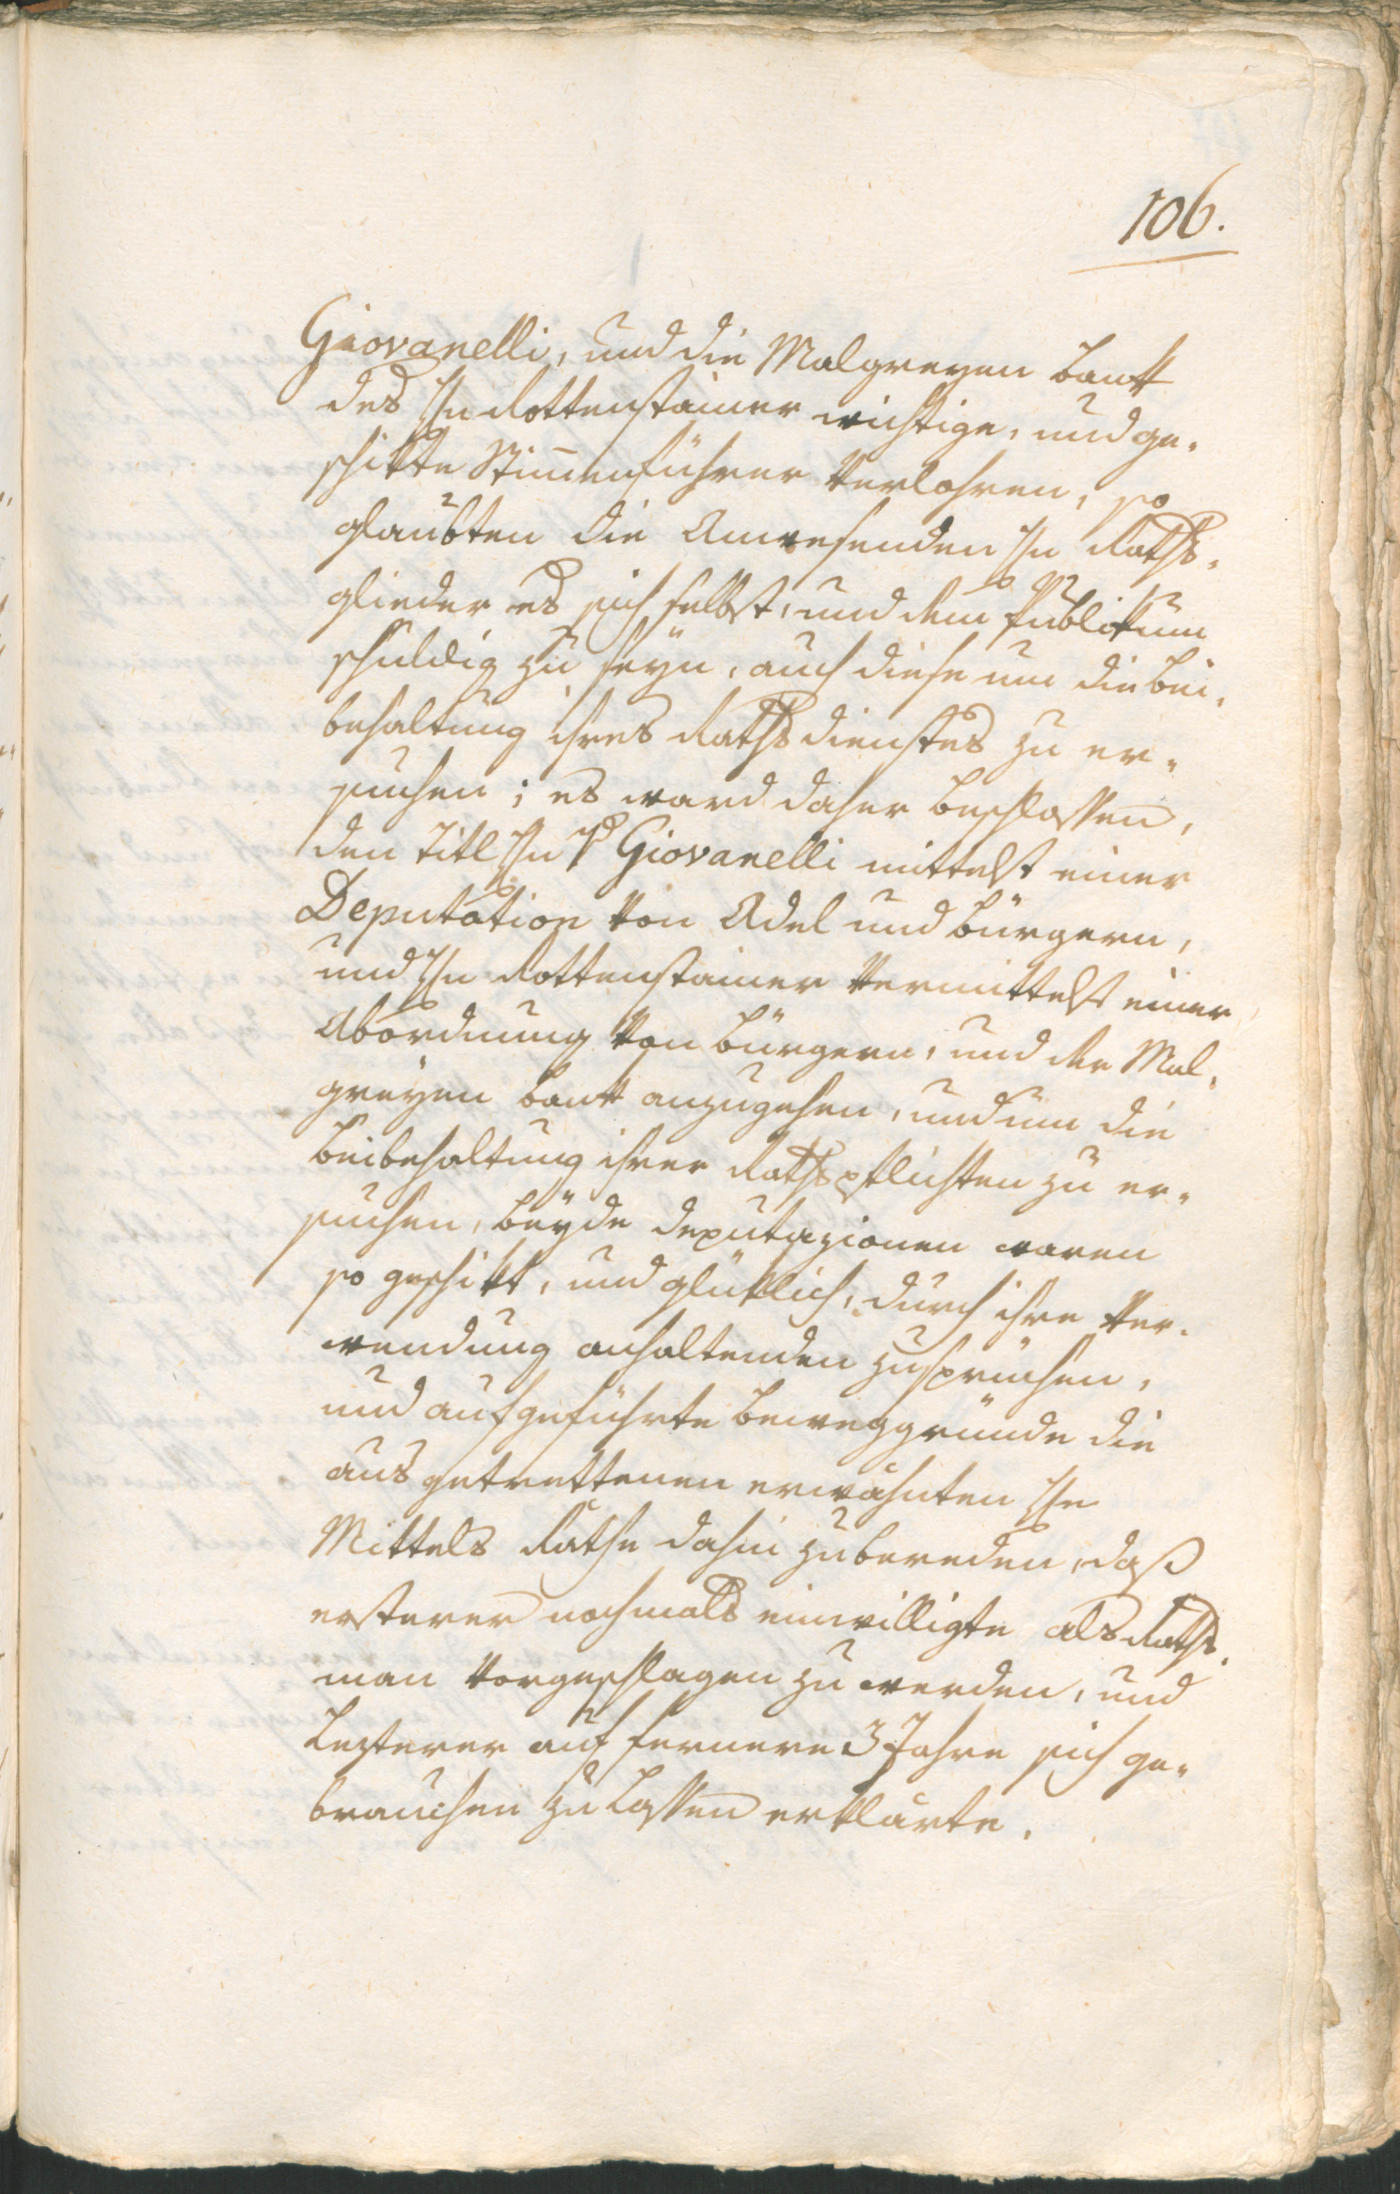 106.
Giovanelli, und die Malgreyen bank
des Hn Rottenstainer wichtige, und ge-
schikte Stimenführer verlohren, so
glaubten die Anwesenden Hn Raths-
glieder es sich selbst, und dem Publikum
schuldig zu seyn, auch diese um die bei-
behaltung ihres Rathsdienstes zu er-
suchen; es ward daher beschlossen,
den Titl Hn v Giovanelli mittelst einer
Deputation von Adel und bürgern,
und Hn Rottenstainer vermittelst einer
Abordnung von bürgern, und der Mal-
greyen bank anzugehen, und um die
beibehaltung ihrer Rathspflichten zu er-
suchen, beyde deputazionen waren
so geschikt, und glüklich, durch ihre ver-
wendung anhaltenden zusprüchen,
und aufgeführte beweggründe die
ausgetrettenen erwähnten Hn
Mittels Räthe dahin zu bereden, daß
ersterer nochmals einwilligte als Raths-
man vorgeschlagen zu werden, und
Lezterer auf fernere 3 Jahre sich ge-
brauchen zu lassen erklärte.